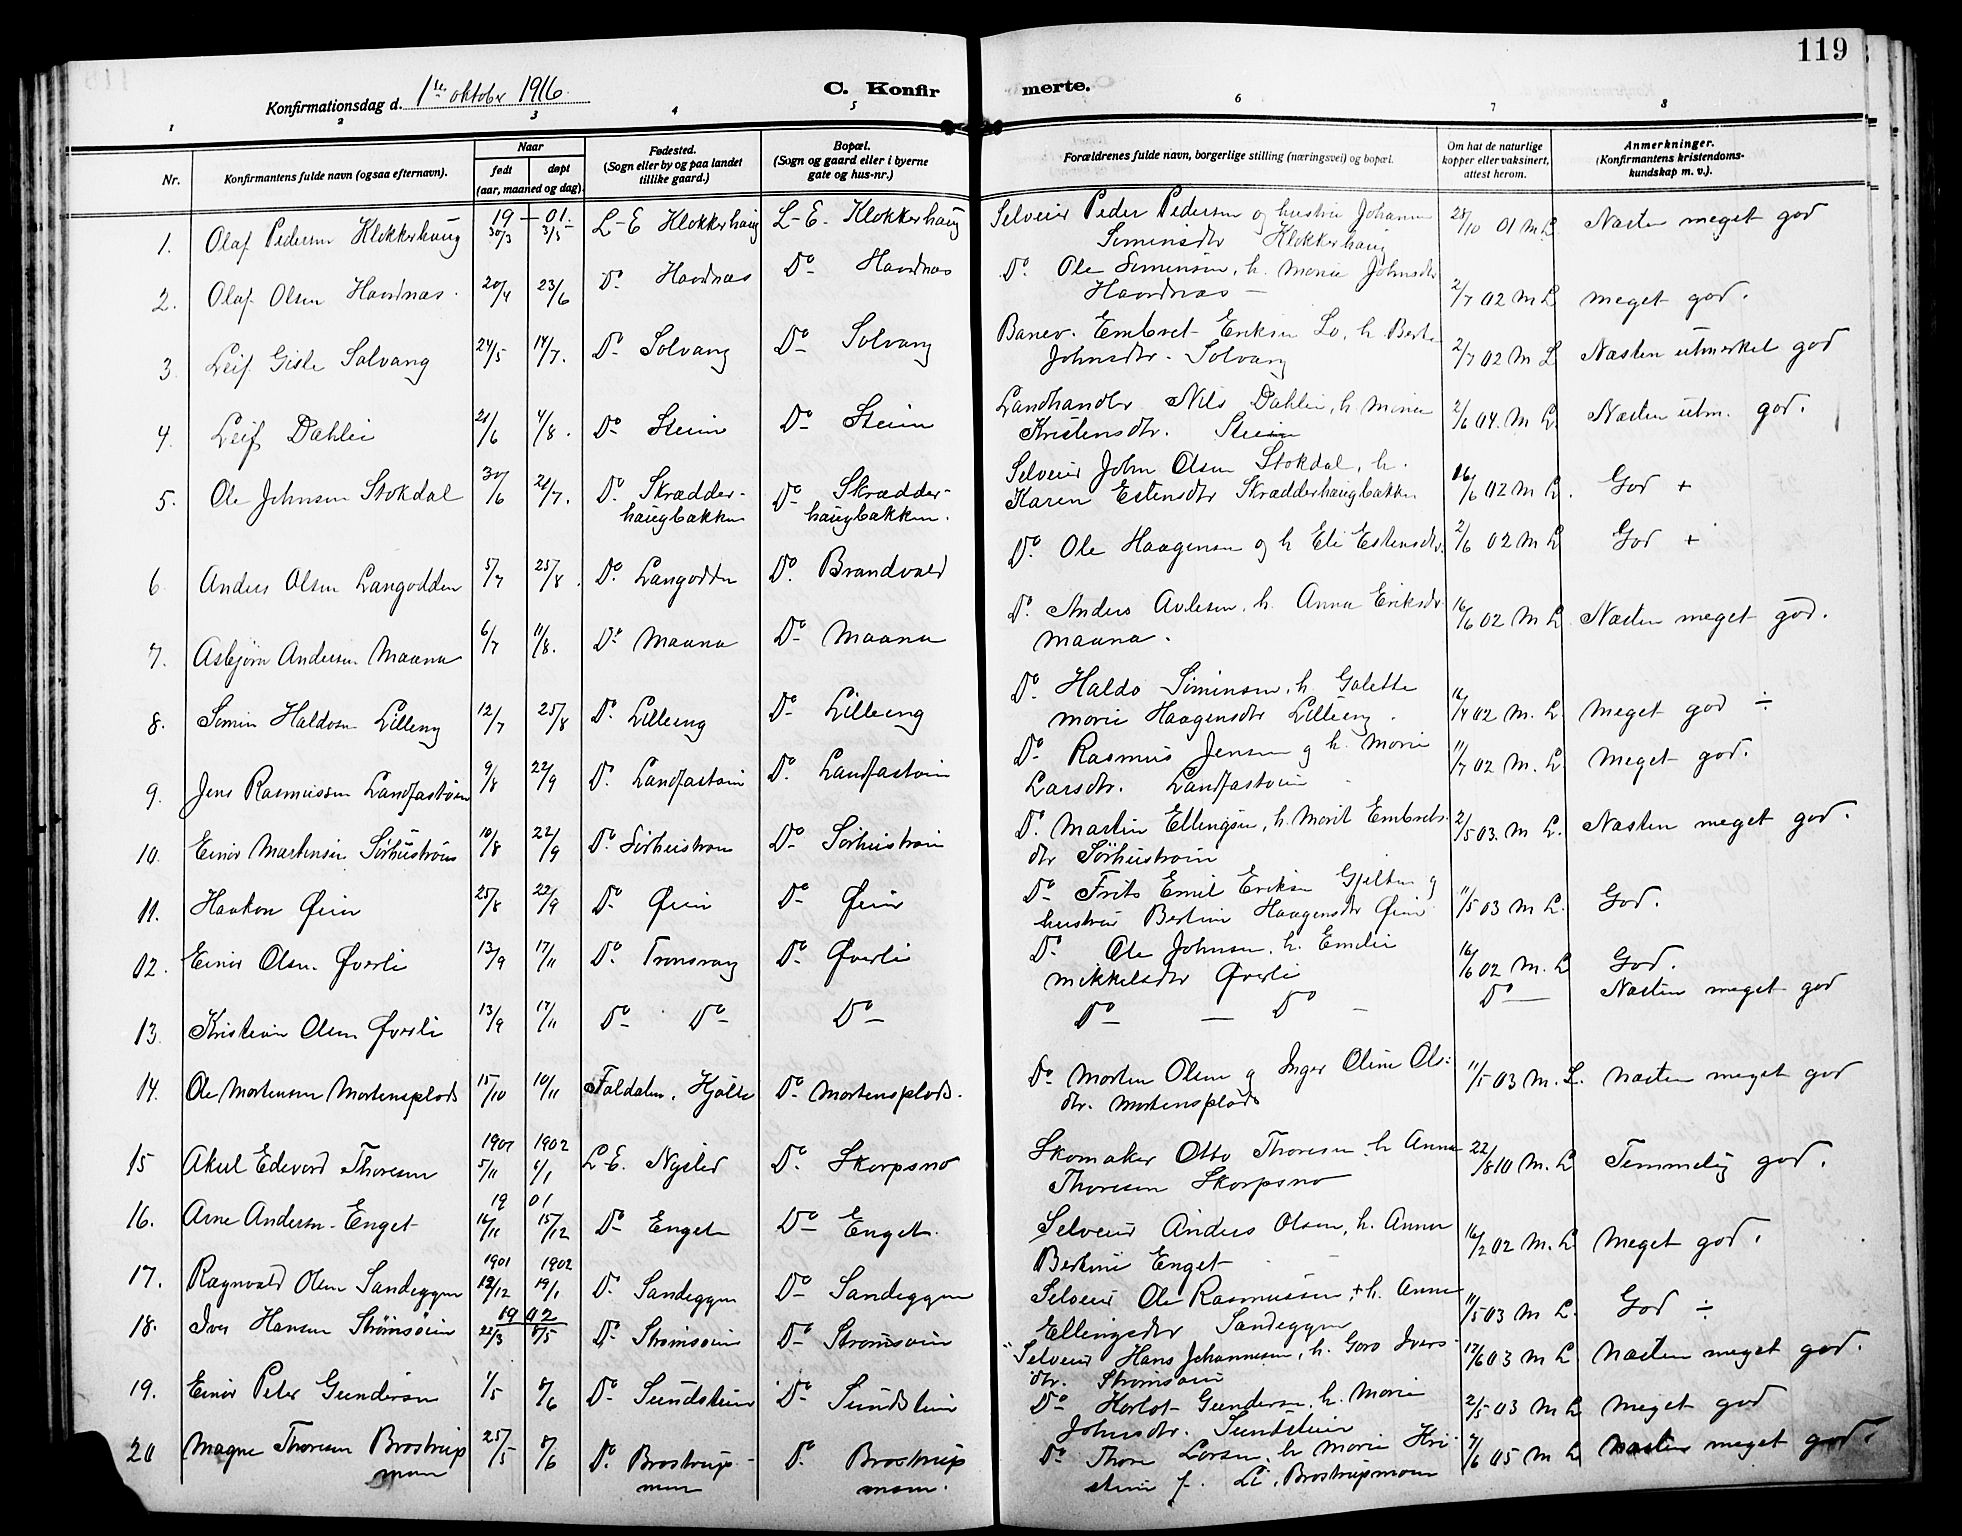 119
Konfirmationsdag d. 1ste oktober 1916.
C. Konfirmerte.
1 2 3 4 5 6 7 8
Nr. Konfirmantens fulde navn (ogsaa efternavn). Naar født døpt (aar, maaned og dag). Fødested. (Sogn eller by og paa landet tillike gaard.) Bopæl. (Sogn og gaard eller i byerne gate og hus-nr.) Forældrenes fulde navn, borgerlige stilling (næringsvei) og bopæl. Om hat de naturlige kopper eller vaksinert, attest herom. Anmerkninger. (Konfirmantens kristendoms-kundskap m. v.).
19 – 01.
1. Olaf Pedersen Klokkerhaug 30/3 3/5 L-E Klokkerhaug L-E. Klokkerhaug Selveier Peder Pedersen og hustru Johanne
Simensdtr Klokkerhaug 28/10 01 M L Næsten meget god
2. Olaf Olsen Haardnæs. 20/4 23/6 Do Haardnæs Do Haardnæs Do. Ole Simensen, h. Marie Johnsdtr
Haardnæs – 2/7 02 M L meget god.
3. Leif Gisle Solvang 24/5 14/7. Do Solvang Do Solvang Banev. Embret Eriksen Lo, h. Berte
Johnsdtr. Solvang 2/7 02 M L Næsten utmerket god
4. Leif Dahlei 21/6 4/8. Do Steim Do Steim Landhandlr Nils Dahlei, h. Marie
Kristensdtr. Steim 2/6 04. M L. Næsten utm. god.
5. Ole Johnsen Stokdal 30/6 21/7. Do. Skrædder-
haugbakken Do Skrædder-
haugbakken. Selveier John Olsen Stokdal, h.
Karen Estensdtr Skrædderhaugbakken 16/6 02 M L. God +
6. Anders Olsen Langodden 5/7 25/8. Do. Langodden Do. Brandvold Do. Ole Haagensen og h Eli Estensdtr. 2/6 02 M L God +
7. Asbjørn Andersen Maana 6/7 11/8. Do. Maana Do Maana Do. Anders Avlesen, h. Anna Eriksdtr.
Maana. 16/6 02 M L. Næsten meget god.
8. Simen Haldosn Lilleeng 12/7 25/8 Do. Lilleeng Do Lilleeng Do. Haldo Simensen, h. Galette
Marie Haagensdtr Lilleeng. 16/4 02 M. L. Meget god ÷
9. Jens Rasmussen Landfastøien 9/8 22/9 Do. Landfastøin Do. Landfastøin Do. Rasmus Jensen og h. Marie
Larsdtr. Landfastøien 11/7 02 M. L. Meget god.
10. Einar Martensen Sørhustrøen 10/8 22/9 Do. Sørhustrøen Do Sørhustrøin Do. Martin Ellingsen, h. Marit Embrets-
dtr Sørhustrøin 2/5 03. M L. Næsten meget god.
11. Haakon Øien 25/8 22/9 Do. Øien Do Øien Do Frits Emil Eriksen Gjelten og
hustru Bertine Haagensdtr Øien 11/5 03 M L. God.
12. Einar Olsen Øverli 13/9 17/11 Do. Tronsvang Do Øverli Do. Ole Johnsen, h. Emilie
Mikkelsdtr Øverli 16/6 02 M. L God.
13. Kristian Olsen Øverli 13/9 17/11 Do Do Do Do – Do – Do Næsten meget god
14. Ole Mortensen Mortensplads 15/10 10/11 Foldalen, Kjølle Do Mortensplads. Do Morten Olsen og Inger Oline Ols-
dtr. Mortensplads 11/5 03 M. L. næsten meget god
1901 1902
15 Aksel Edvard Thoresen 5/11 6/1 L-E. Nysted Do. Skorpsno Skomaker Otto Thoresen h Anna
Thoresen Skorpsno 22/8 10 M. L Temmelig god.
19 01
16. Arne Andersen Enget 16/11 15/12 Do Enget Do Enget. Selveier Anders Olsen, h. Anna
Bertine Enget 16/2 02 M. L Meget god.
1901 1902
17. Ragnvald Olsen Sandeggen 12/12 19/1 Do. Sandeggen Do Sandeggen Selveier Ole Rasmussen, + h. Anne
Ellingsdtr Sandeggen 11/5 03 M L. God ÷
1902
18. Iver Hansen Strømsøien 22/3 8/5 Do. Strømsøien Do Strømsøien Selveier Hans Johannesen, h. Goro Ivers-
dtr. Strømsøien 12/6 03 M L næsten meget god.
19. Einar Peter Gundersen 1/5 8/6 Do Sundsteien Do Sundstein Do Harlot Gundersen, h. Marie
Johnsdtr. Sundsteien 2/5 03 M L Meget god
20 Magne Thoresen Brostrup
moen 25/5 8/6 Do. Brostrup-
moen Do. Brostrup
moen. Do Thore Larsen, h. Marie Kri-
stine f. Li, Brostrupmoen 7/6 05 M L næsten meget god.